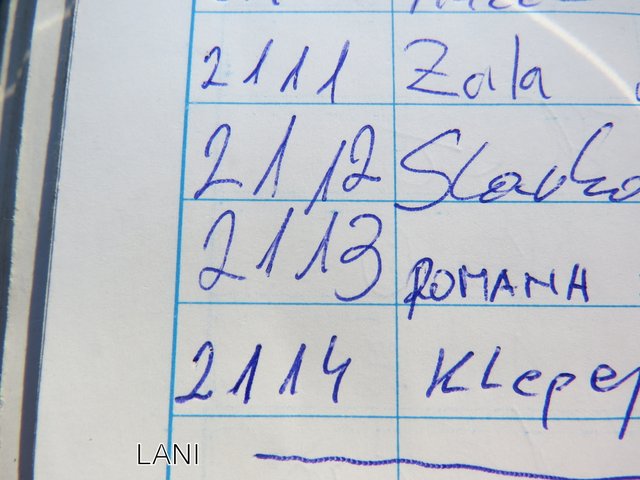 2111 Zala
2112 Slavko
2113 ROMANA
2114
LANI